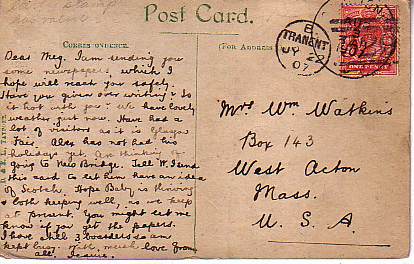 Post Card.
CORRESPONDENCE.
(FOR ADDRESS
TRANENT
JY
07
ONE PENNY
Dear Meg. I am sending you
some newspapers which I
hope will reach you safely.
Have you given over writing? or
is it hot with you? We have lovely
weather just now. Have had a
lot of visitors as it is Glasgow
Fair. Alex has not had his
holidays yet. Am thinking on
going to New Bridge. Tell W. I send
this card to let him have an idea
of Scotch. Hope Baby is thriving
& both keeping well, as we keep
at present. You might let me
know if you get the papers.
I have still 3 boarders so am
kept busy. With much love from
all. Jessie.
Mrs Wm Watkins
Box 143
West Acton
Mass.
U. S. A.